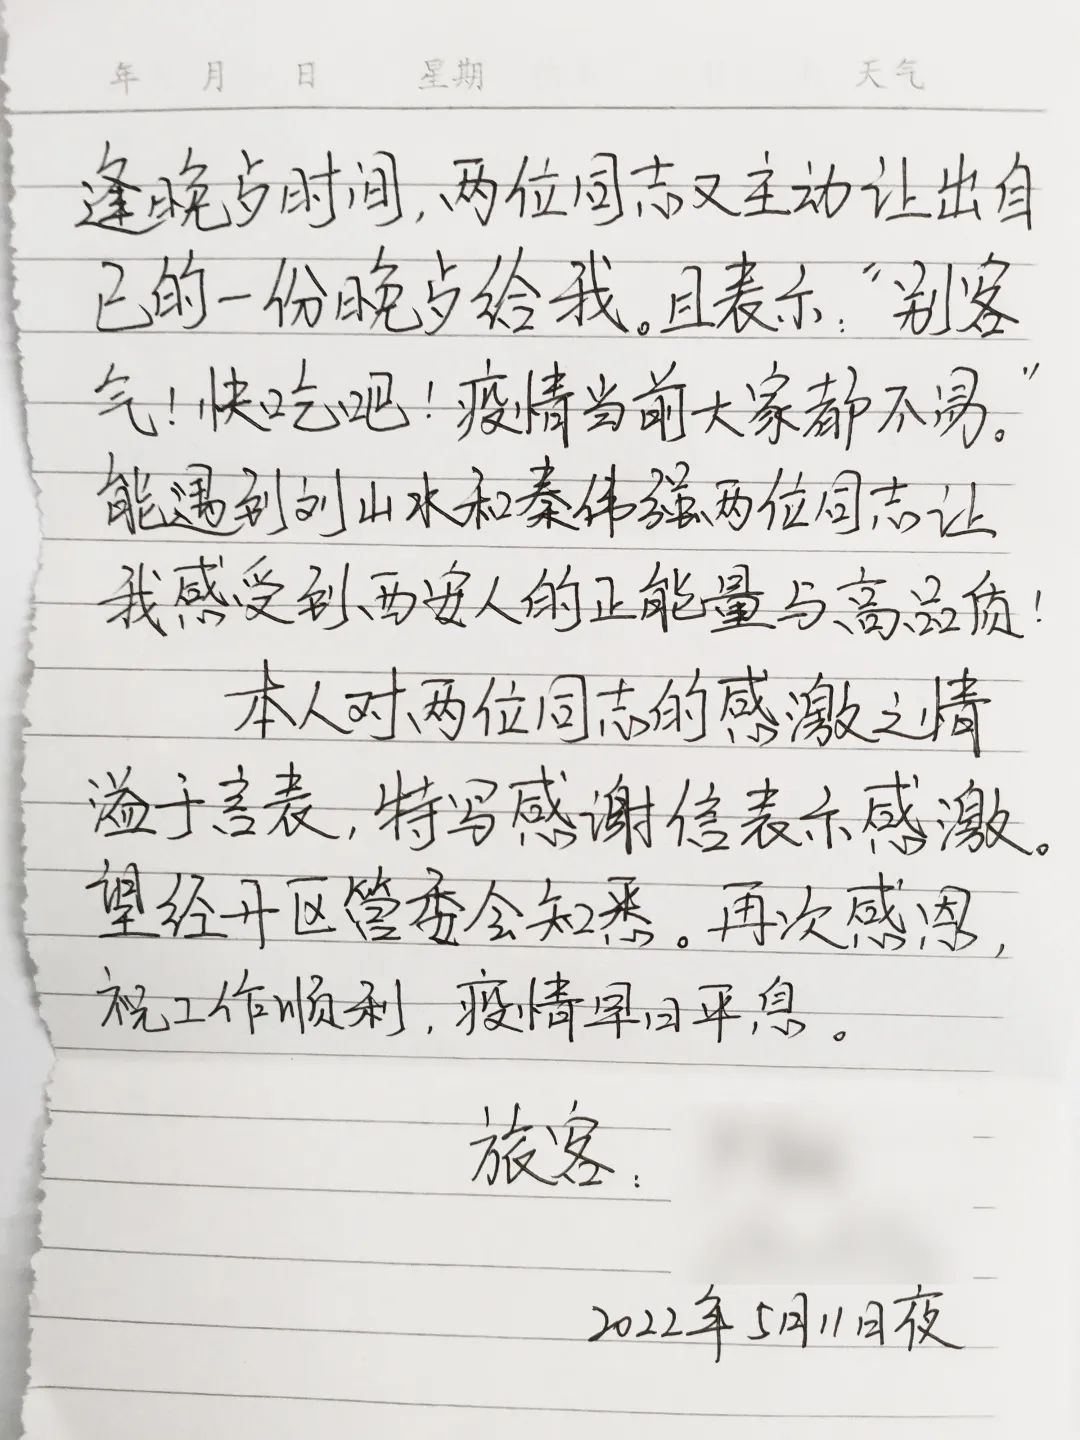 年 月 日 星期 天气
逢晚点时间,两位同志又主动让出自
己的一份晚点给我。且表示:“别客
气!快吃吧!疫情当前大家都不易。”
能遇到刘山水和秦伟强两位同志让
我感受到西安人的正能量与高品质!
本人对两位同志的感激之情
溢于言表,特写感谢信表示感激。
望经开区管委会知悉。再次感恩,
祝工作顺利,疫情早日平息。
旅客:
2022年5月11日夜